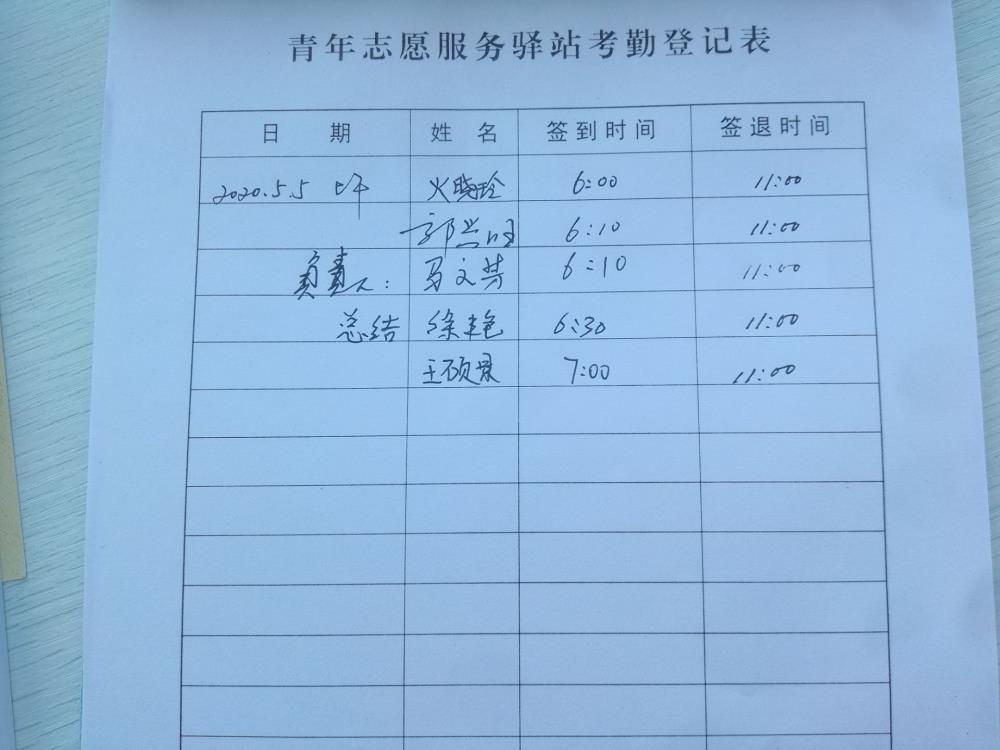 青年志愿服务驿站考勤登记表
日 期 姓 名 签到时间 签退时间
2020.5.5 上午 火晓玲 6:00 11:00
郭兴旺 6:10 11:00
负责人: 马文芳 6:10 11:00
总结 徐丰艳 6:30 11:00
王硕 7:00 11:00